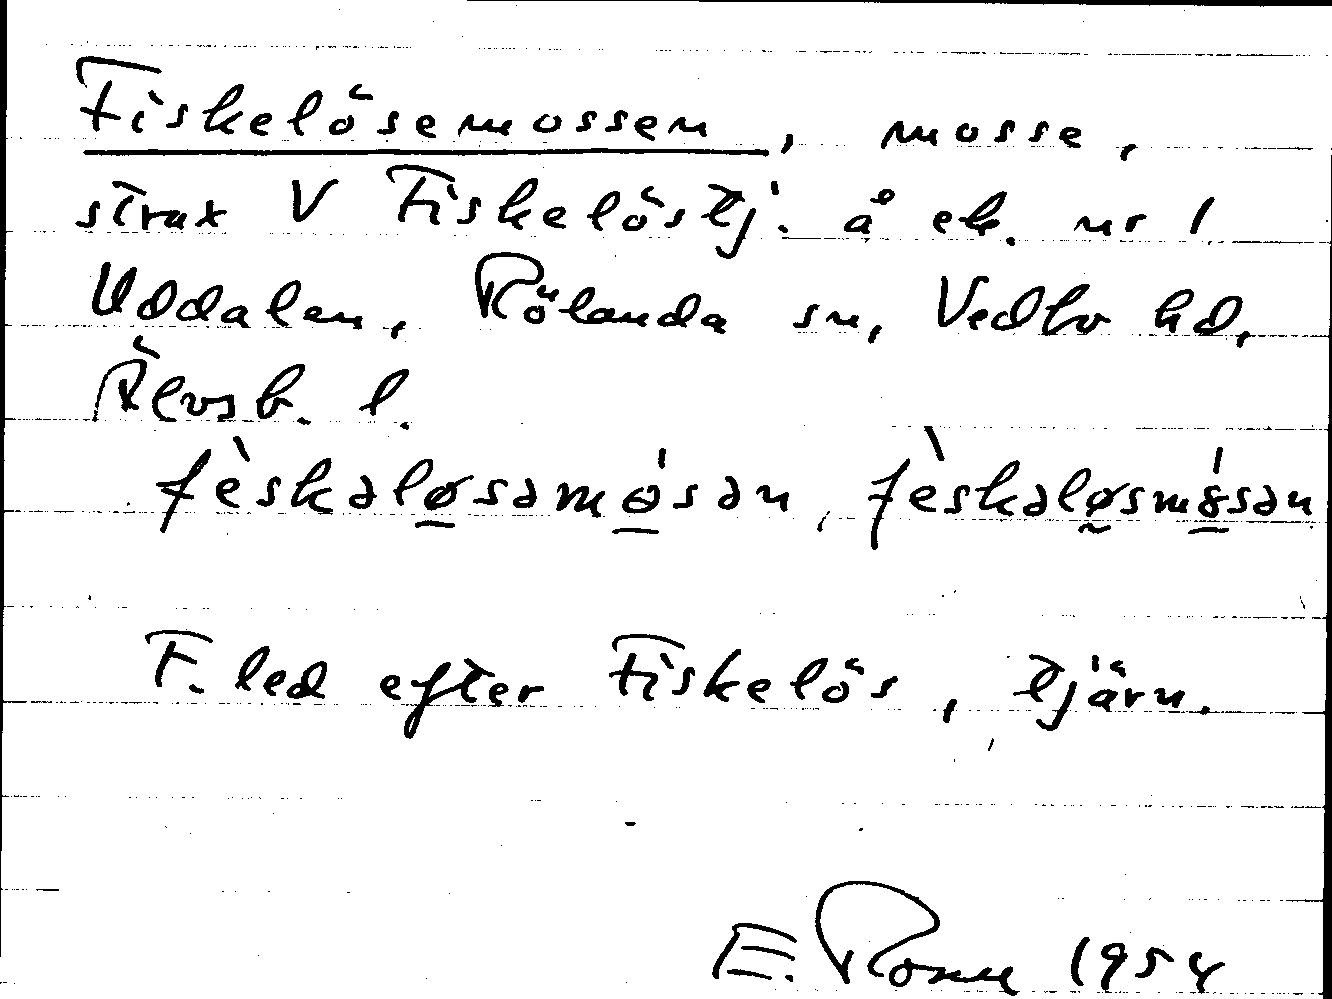 Fiskelösemossen, mosse,
strax V Fiskelöstj. å ek. nr 1
Uddalen, Rölanda sn, Vedbo hd,
Älvsb. l.
fèskəlø̠səmò̠sən, fèskəlø̰smȯ̠sən
F.led efter Fiskelös, tjärn.
E. Rosell 1954